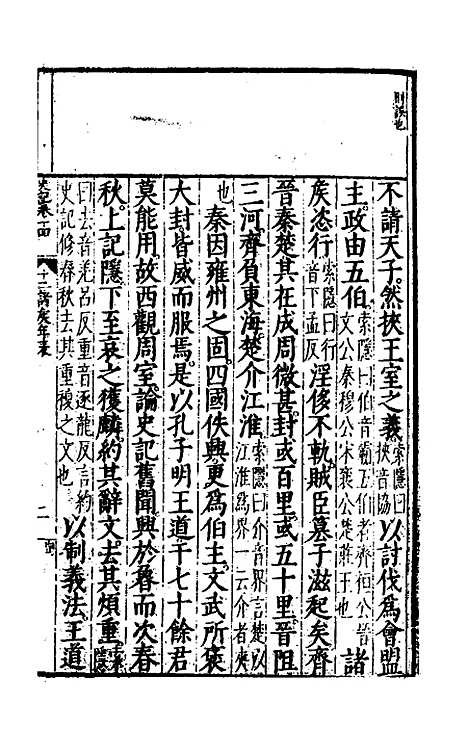 則誤也
不請天子然挾王室之義索隱曰挾音協以討伐為會盟
主政由五伯索隱曰伯音霸五伯者齊桓公晉文公秦穆公宋襄公楚莊王也諸
侯恣行索隱曰行音下孟反淫侈不軌賊臣篡子滋起矣齊
晉秦楚其在成周微甚封或百里或五十里晉阻
三河齊負東海楚介江淮索隱曰介音界言楚以江淮為界一云介者夾
也秦因雍州之固四國佚興更為伯主文武所褒
大封皆威而服焉是以孔子明王道干七十餘君
莫能用故西觀周室論史記舊聞興於魯而次春
秋上記隱下至哀之獲麟約其辭文去其煩重索隱
曰去音羌呂反重音逐龍反言約史記修春秋去其重複之文也以制義法王道
史記卷十四 十二諸侯年表 二